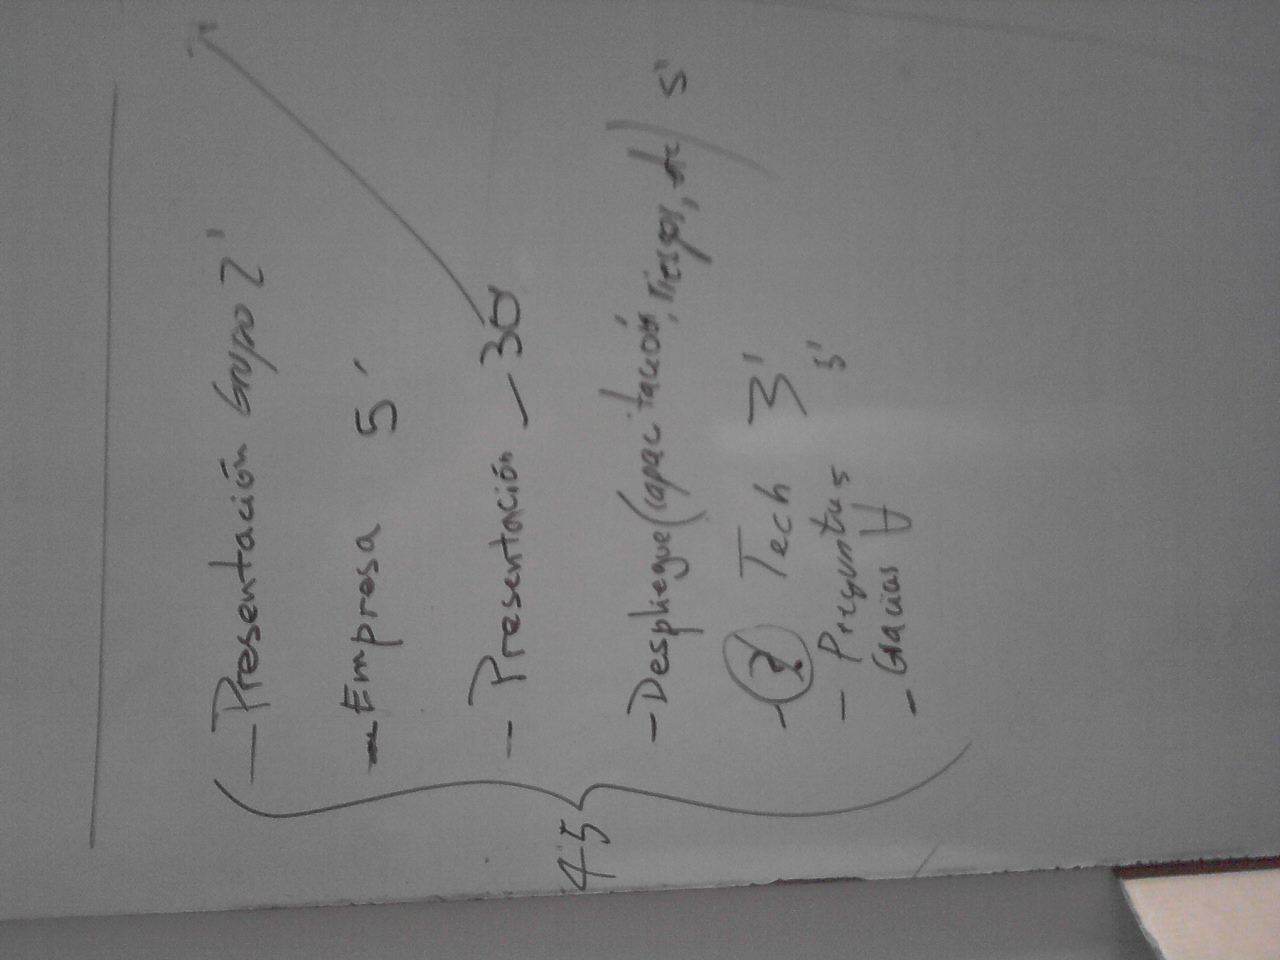 - Presentación Grupo 2'
- Empresa 5'
- Presentación - 30'
45
- Despliegue (capacitación, riesgos, etc) 5'
- ? Tech 3'
- Preguntas 5'
- Gracias